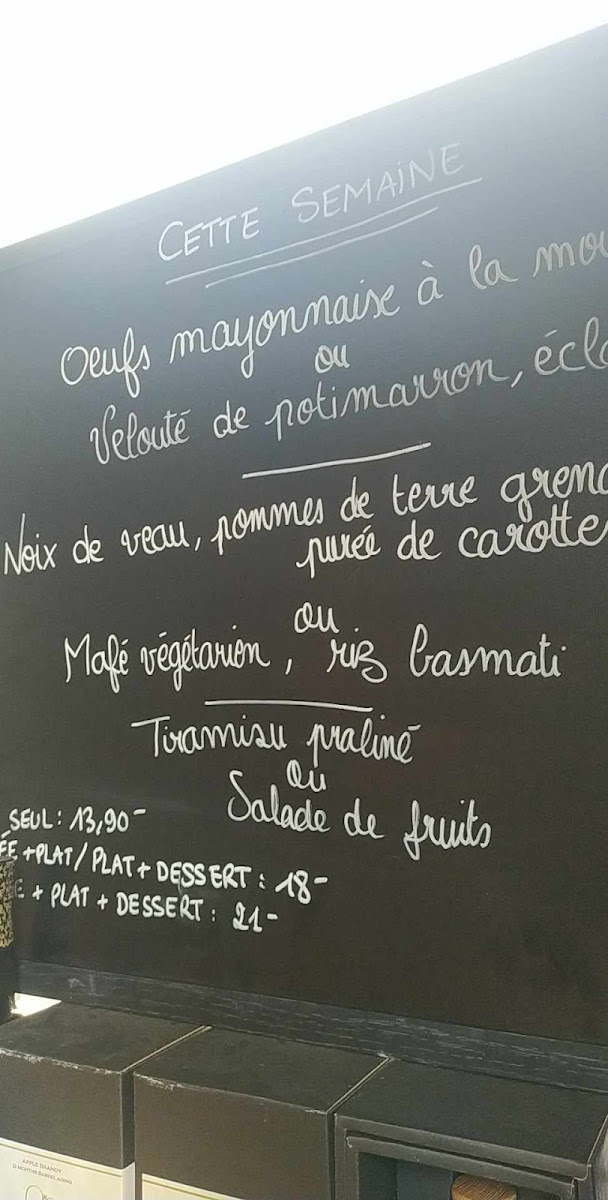 CETTE SEMAINE
Oeufs mayonnaise à la
ou
Velouté de potimarron,
Noix de veau, pommes de terre
purée de carotte
ou
Mafé végétarien, riz basmati
Tiramisu praliné
ou
Salade de fruits
SEUL : 13,90-
+PLAT / PLAT + DESSERT : 18-
+ PLAT + DESSERT : 21-
APPLE BRANDY